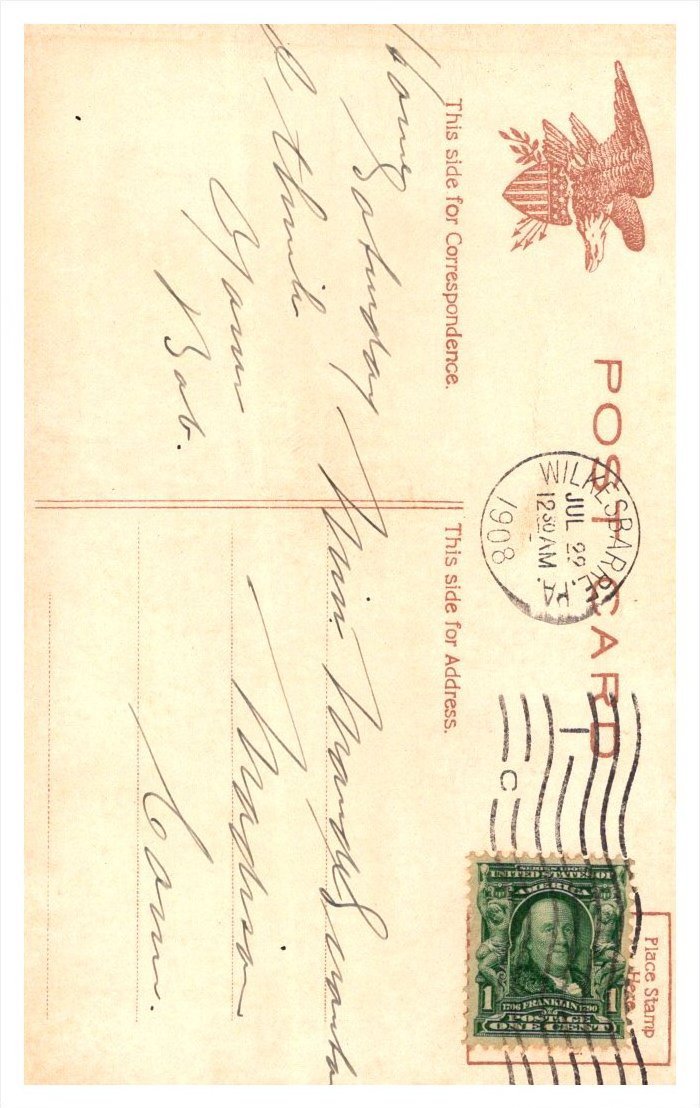 POST CARD
WILKESBARRE, PA
JUL 22
12 30 AM
1908
1
C
Place Stamp
Here
SERIES 1902
UNITED STATES OF
AMERICA
1706 FRANKLIN 1790
1 1
POSTAGE
ONE CENT
This side for Correspondence.
Home
Saturday
I think
Yours
Bob.
This side for Address.
Miss.
Madison
Conn.